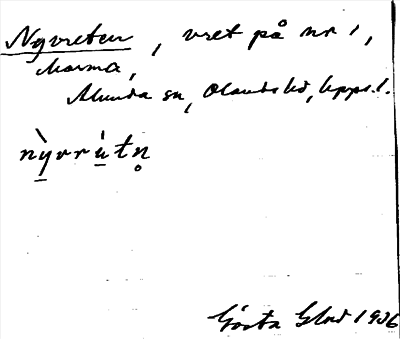 Nyvreten, vret på nr 1,
Marma,
Alunda sn, Olands hd, Upps. l.
nỳvrùtn̥
Gösta Glad 1936